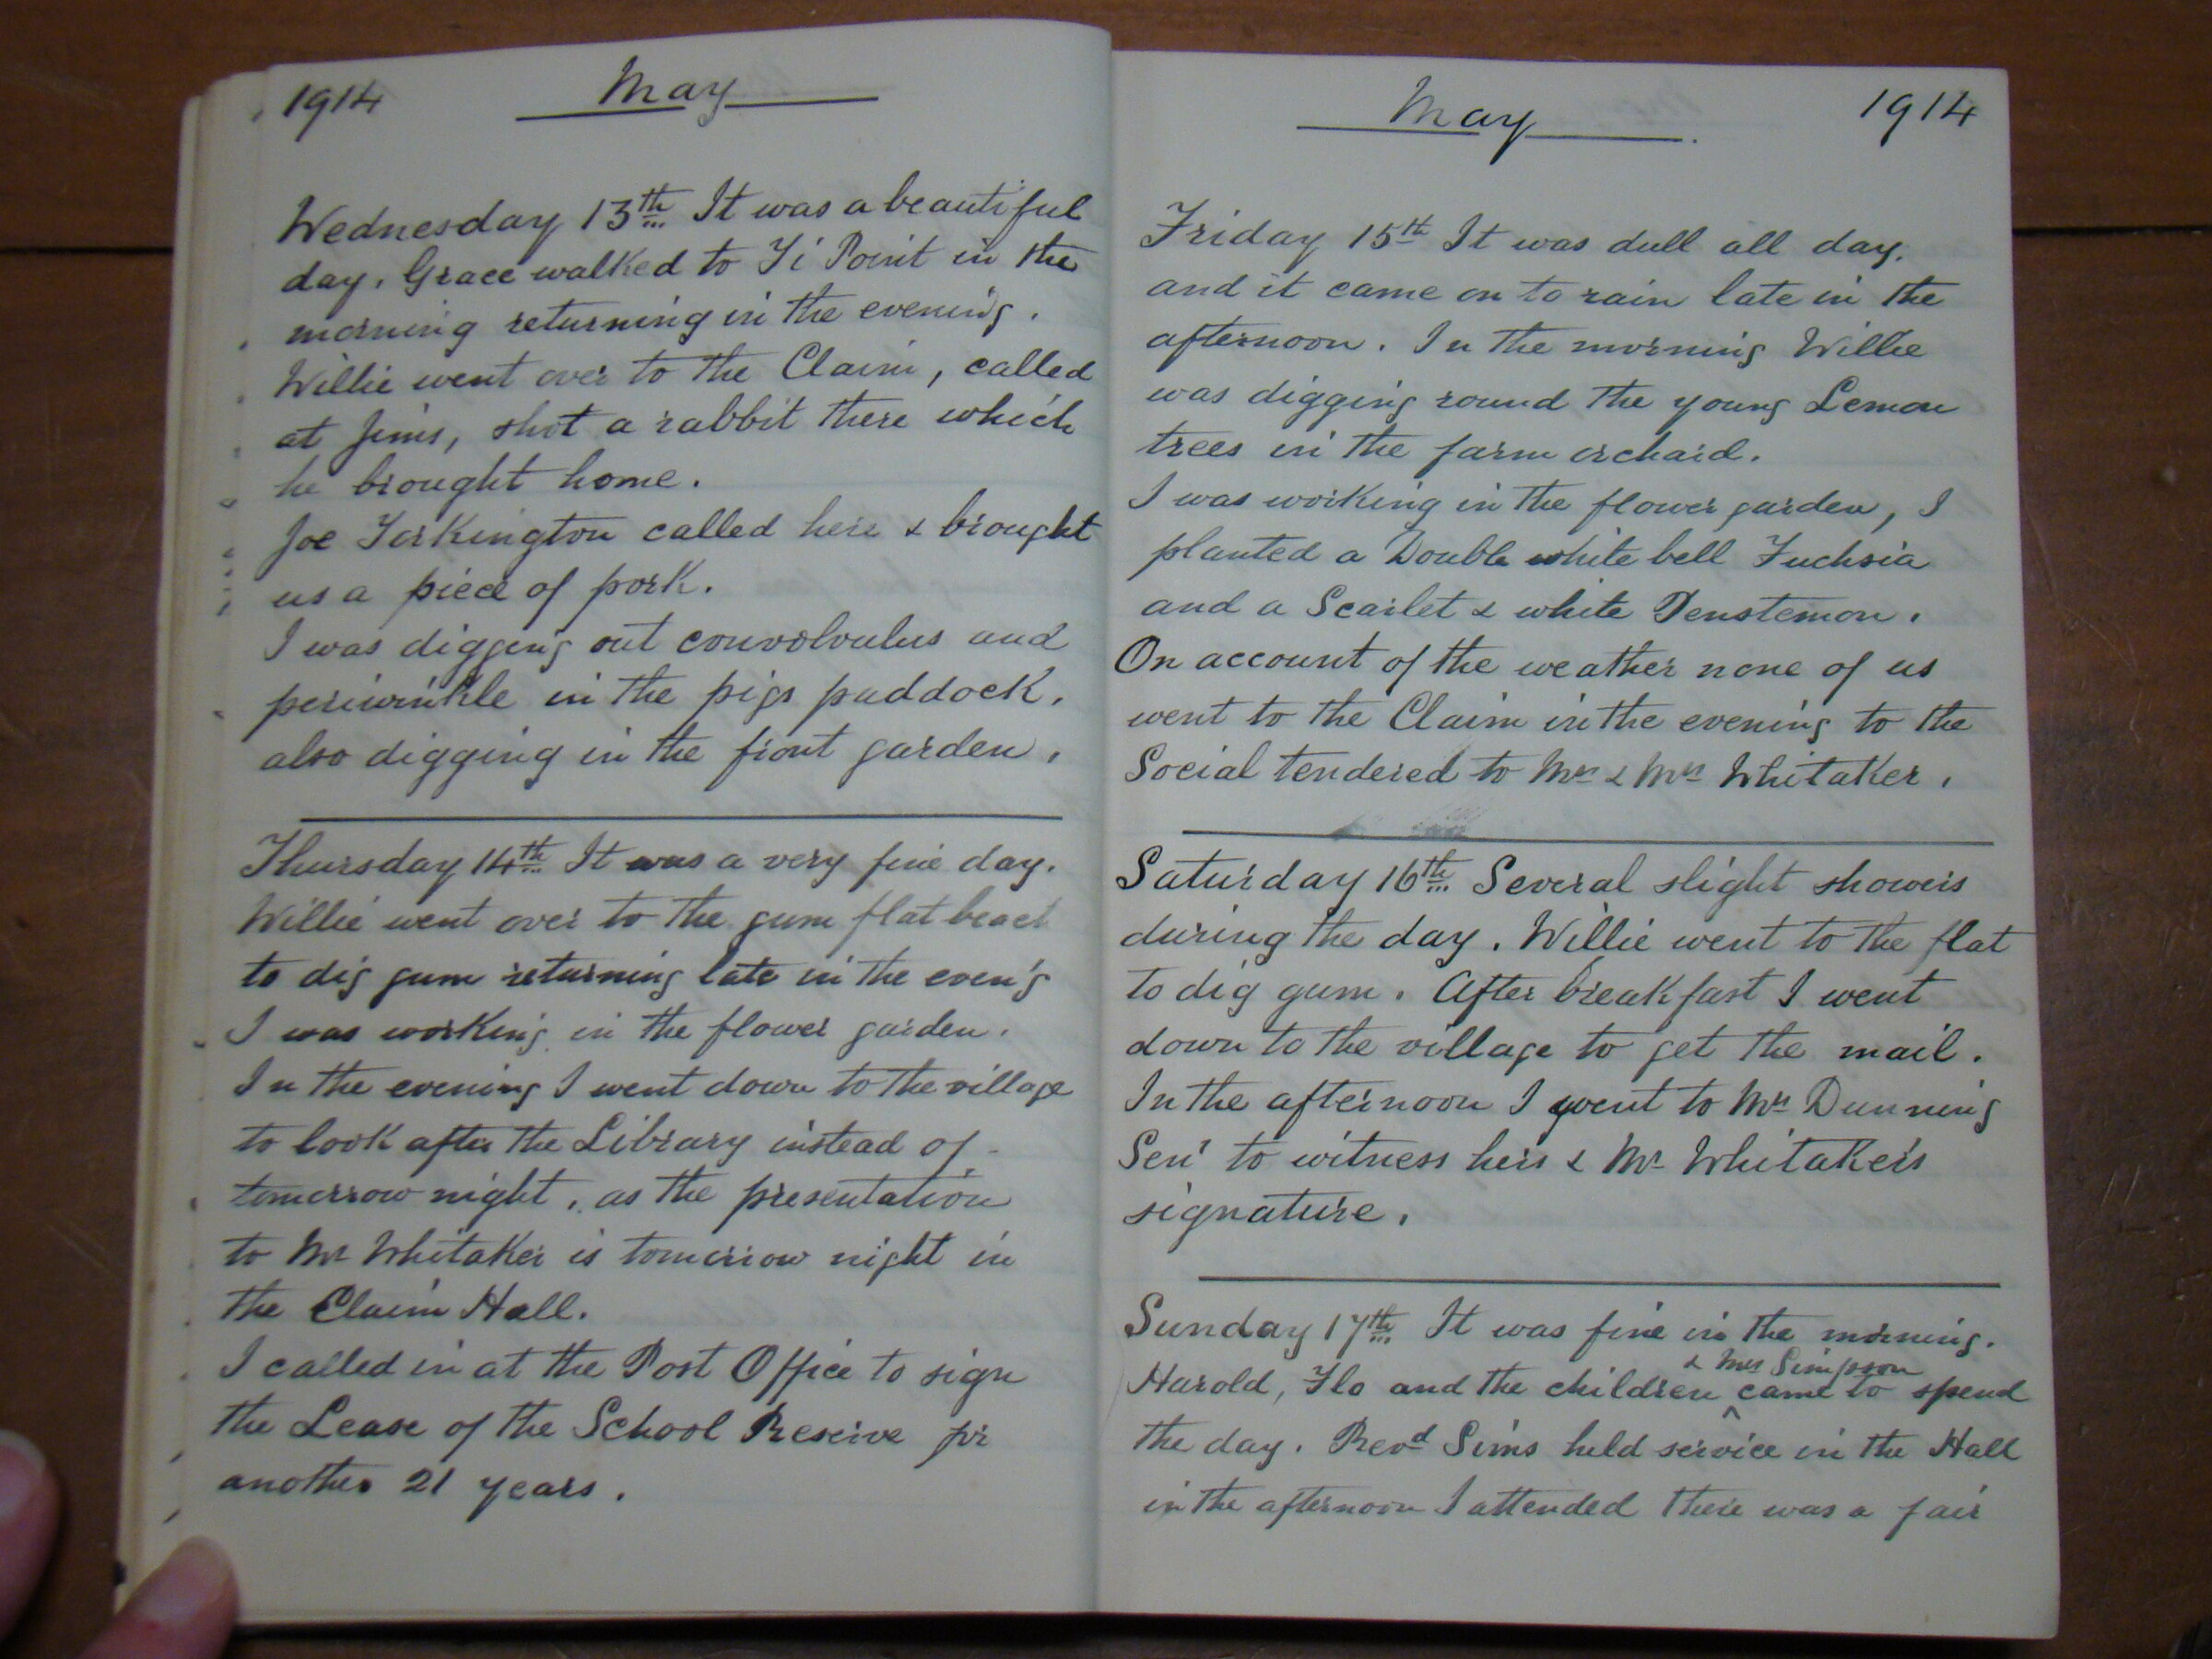 1914 May
Wednesday 13th It was a beautiful
day. Grace walked to Ti Point in the
morning returning in the evening.
Willie went over to the Claim, called
at Jims, shot a rabbit there which
he brought home.
Joe Torkington called here & brought
us a piece of pork.
I was digging out convolvulus and
periwinkle in the pigs paddock,
also digging in the front garden.
Thursday 14th It was a very fine day.
Willie went over to the gum flat beach
to dig gum returning late in the even'g
I was working in the flower garden.
In the evening I went down to the village
to look after the Library instead of
tomorrow night, as the presentation
to Mr Whitaker is tomorrow night in
the Claim Hall.
I called in at the Post Office to sign
the Lease of the School Reserve for
another 21 years.
May 1914
Friday 15th It was dull all day.
and it came on to rain late in the
afternoon. In the morning Willie
was digging round the young Lemon
trees in the farm orchard.
I was working in the flower garden, I
planted a Double white bell Fuchsia
and a Scarlet & white Penstemon.
On account of the weather none of us
went to the Claim in the evening to the
Social tendered to Mr & Mrs Whitaker.
Saturday 16th Several slight showers
during the day. Willie went to the flat
to dig gum. After breakfast I went
down to the village to get the mail.
In the afternoon I went to Mrs Dunning
Senr to witness hers & Mr Whitakers
signature.
Sunday 17th It was fine in the morning.
& Mrs Simpson
Harold, Flo and the children ^ came to spend
the day. Revd Sims held service in the Hall
in the afternoon I attended there was a fair